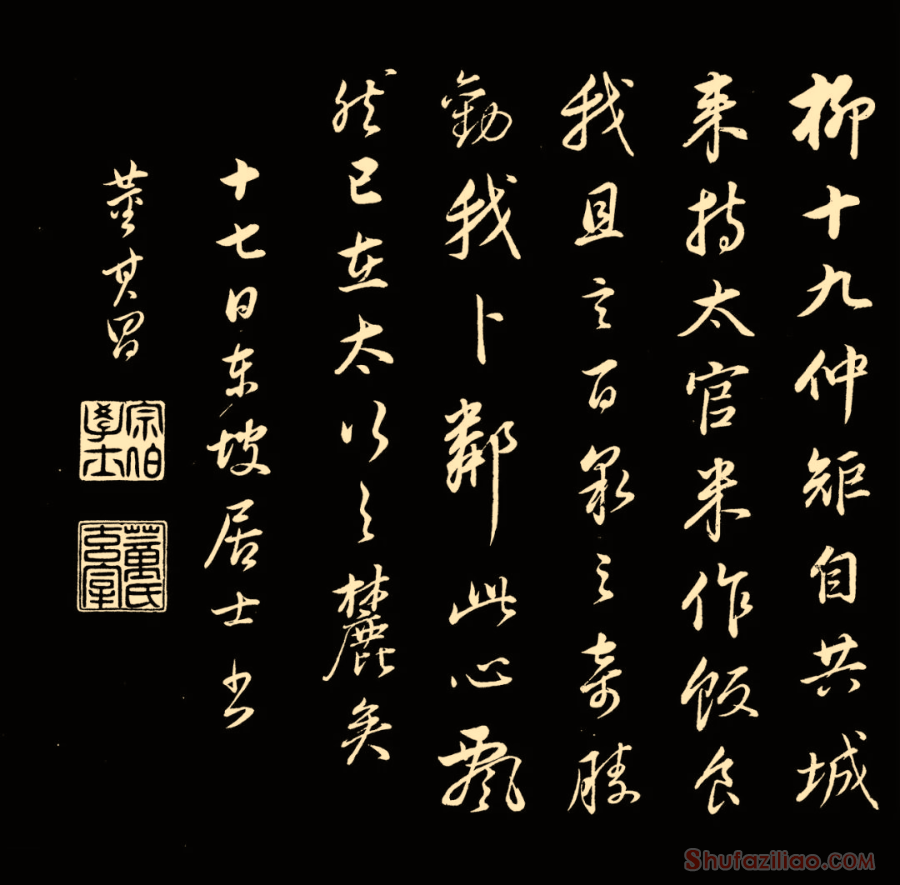 柳十九仲矩自共城
来持太官米作飯食
我且言百泉之奇勝
勸我卜鄰此心飄
然已在太行之麓矣
十七日東坡居士書
董其昌
宗伯學士
董氏玄宰
Shufaziliao.COM